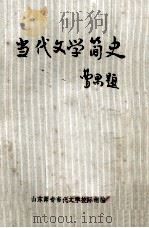 当代文学简史
曹禺题
山东师专当代文学教研组编